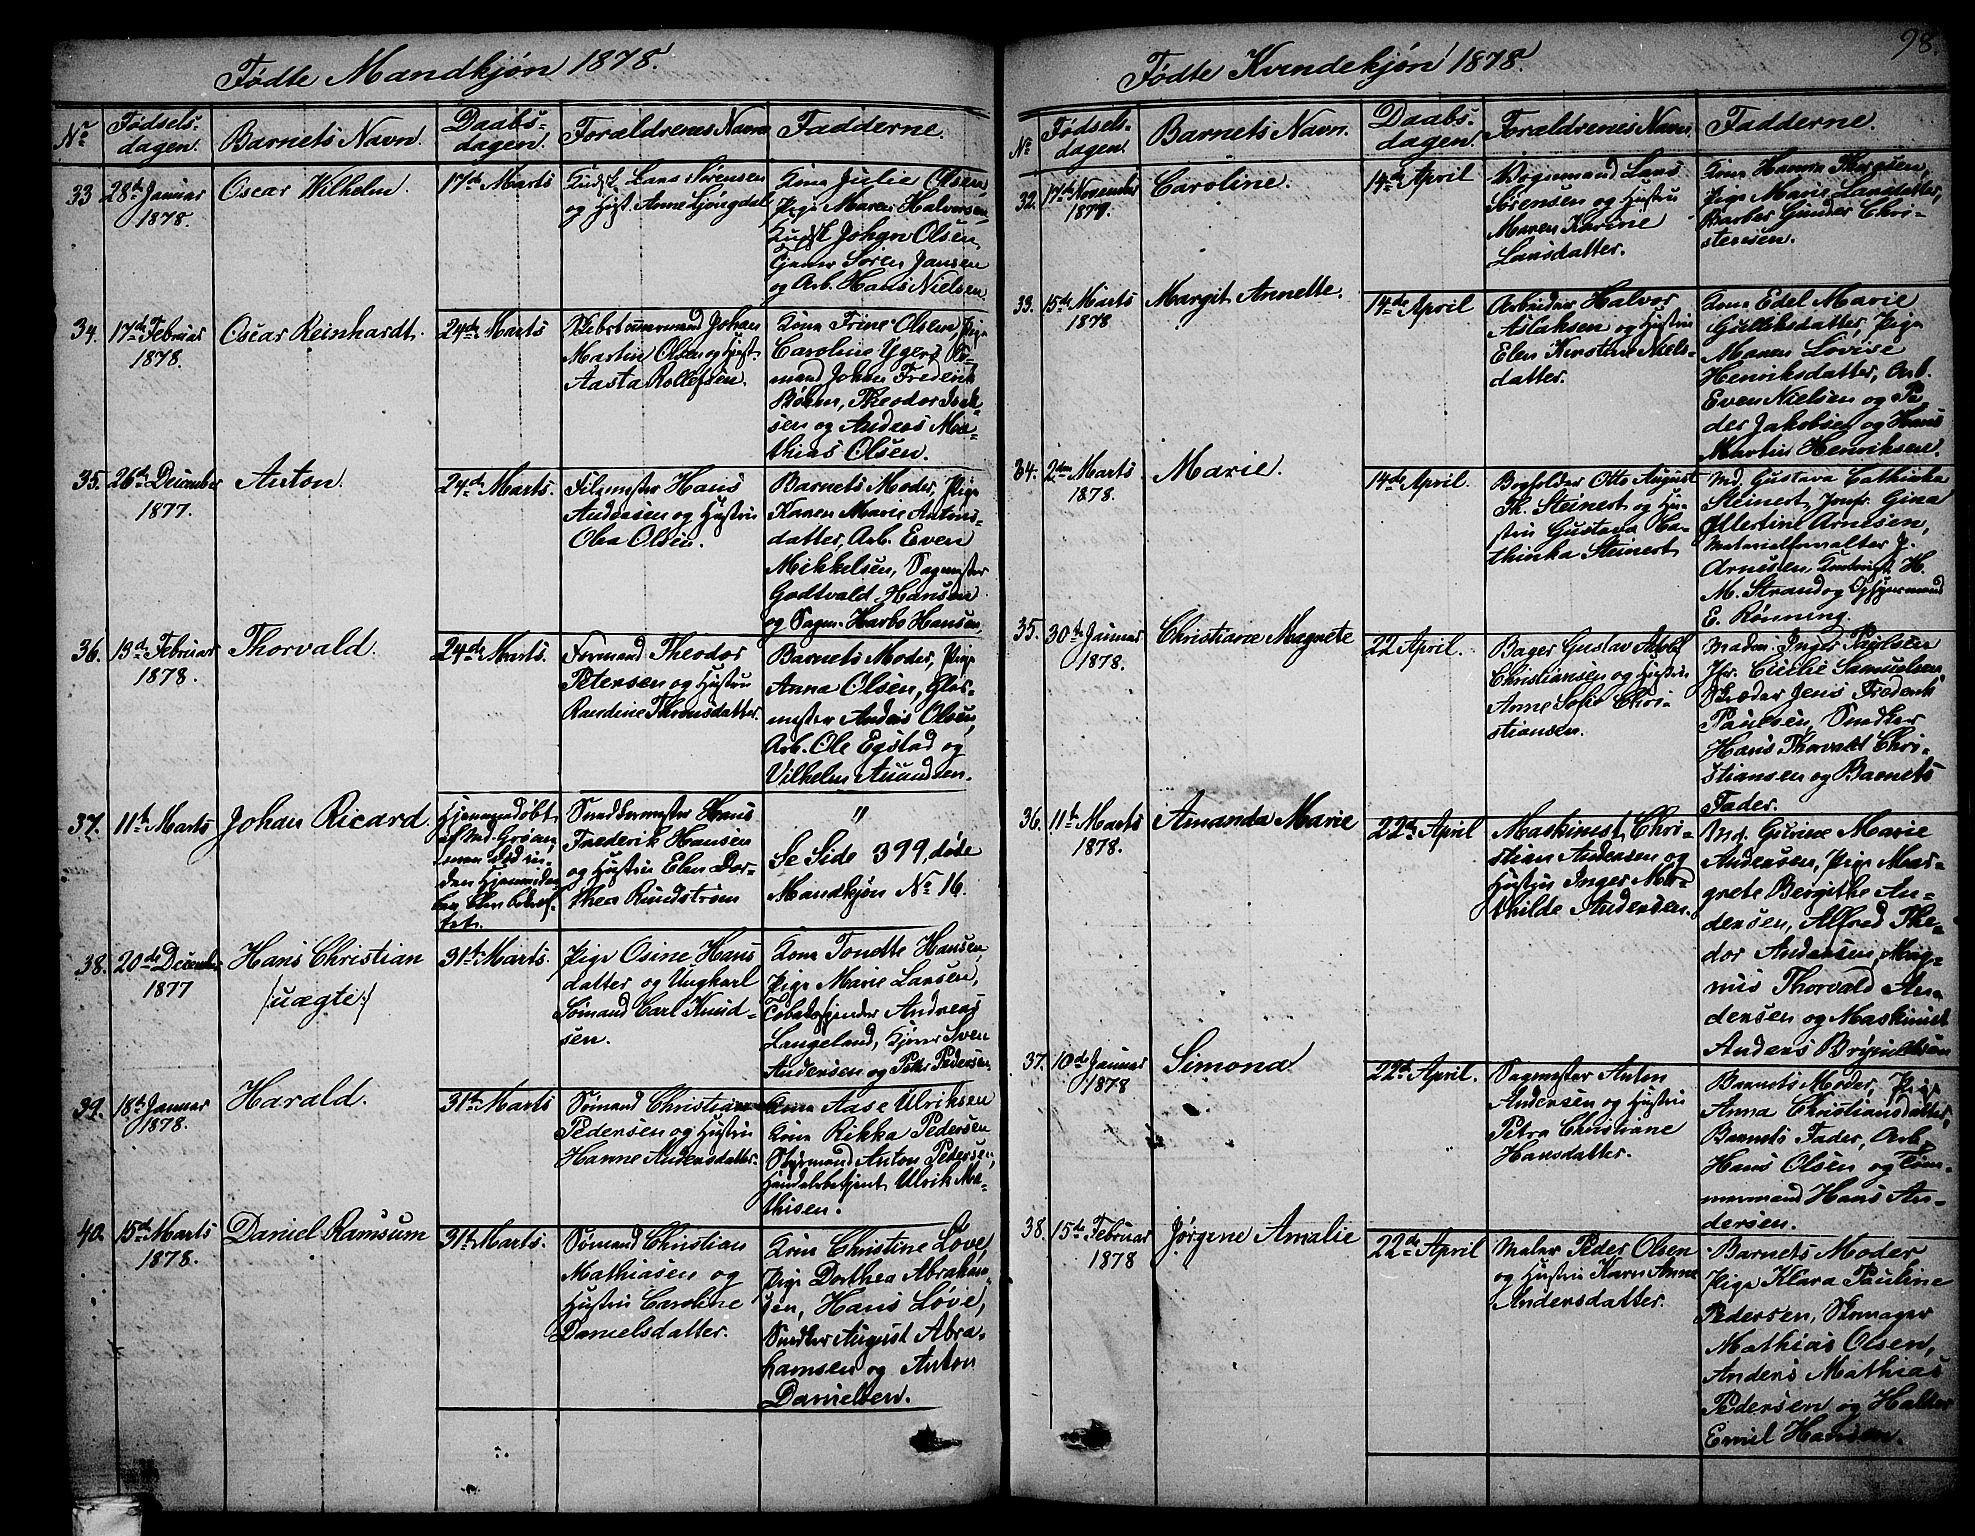 98.
Fødte Mandkjøn 1878.
No
Fødsels-
dagen.
Barnets Navn.
Daabs-
dagen.
Forældrenes Navn
Fadderne.
33
28de Januar
1878.
Oscar Wilhelm.
17de Marts
Kudsk Lars Sørensen
og Hust. Anne Ljøngdal
Kona Julie Olsen,
Pige Maren Halvorsen,
Kudsk Johan Olsen,
Tjener Søren Jansen
og Arb. Hans Nielsen.
34.
17de Februar
1878.
Oscar Reinhardt.
24de Marts
Johan
Martin Olsen og Hust.
Aasta Rollefsen.
Kona Trine Olsen, Pige
Caroline
mand Johan Frederik
Theodor
sen og Anders Ma-
thias Olsen.
35.
26de December
1877.
Anton.
24de Marts.
Filemester Hans
Andersen og Hustru
Olea Olsen.
Barnets Moder, Pige
Karen Marie Antons-
datter, Arb. Even
Mikkelsen, Sagmester
Godtvald Hansen
og Sagm. Harbo Hansen.
36.
13de Februar
1878.
Thorvald.
24de Marts.
Formand Theodor
Petersen og Hustru
Randine Thronsdatter.
Barnets Moder, Pige
Anna Olsen, Glas-
mester Anders Olsen,
Arb. Ole Egstad og
Vilhelm Amundsen.
37.
11te Marts
Johan Ricard.
Hjemmedøbt
af Md. Gröan,
men død in-
den Hjemmedaa-
ben blev bekræf-
tet.
Snedkermester Hans
Frederik Hansen
og Hustru Elen Dor-
thea Rundstrøm
"
Se Side 399, døde
Mandkjøn No 16.
38.
20de December
1877
Hans Christian
/:uægte:/
31te Marts.
Pige Osine Hans
datter og Ungkarl
Sømand Carl Knud-
sen.
Kona Tonette Hansen,
Pige Marie Larsen,
Tobaksspinder Andreas
Langeland, Tjener Sven
Andersen og Peter Pedersen.
39.
18de Januar
1878.
Harald.
31te Marts
Sømand Christian
Pedersen og Hustru
Hanne Andersdatter.
Kona Aase Ulriksen
Kona Rikka Pedersen
Styrmand Anton Pedersen,
Handelsbetjent Ulrik Ma-
thisen.
40.
15de Marts
1878.
Daniel Ramsum
31te Marts.
Sømand Christian
Mathiasen og
Hustru Caroline
Danielsdatter.
Kona Christine Løve,
Pige Dorthea Abraham-
sen, Hans Løve,
Snedker August Abra-
hamsen og Anton
Danielsen.
Fødte Kvindekjøn 1878.
No
Fødsels-
dagen.
Barnets Navn.
Daabs-
dagen.
Forældrenes Navn.
Fadderne.
32.
17de November
1877.
Caroline.
14de April
Vognmand Lars
Sørensen og Hustru
Maren Karine
Larsdatter.
Kona Hanna
Pige Marie Larsdatter,
Barber Gunder Chri-
stensen.
33.
15de Marts
1878
Margit Annette.
14de April
Arbeider Halvor
Aslaksen og Hustru
Elen Kirstine Niels-
datter.
Kona Edel Marie
Gulliksdatter, Pige
Maren Lovise
Henriksdatter, Arb.
Even Nielsen og Pe-
der Jakobsen og Hans
Martin Henriksen.
34.
2den Marts
1878.
Marie.
14de April.
Bogholder Otto August
Th. Steinert og Hu-
stru Gustava Ka-
thinka Steinert
Md. Gustava Cathinka
Steinert, Jomfr. Gina
Mertine Arnesen,
Materialforvalter J.
Arnesen, H.
M. Strand og Opsynsmand
E. Rønning.
35.
30te Januar
1878.
Christiane Magnete
22 April.
Bager Gustav Adolf
Christiansen og Hustru
Anne Sofie Chri-
stiansen.
Madm. Inger Paulsen
Jfr. Cecilie Samuelsen,
Skræder Jens Frederik
Paulsen, Snedker
Hans Thorvald Chri-
stiansen og Barnets
Fader.
36.
11te Marts
1878.
Amanda Marie
22de April
Maskinist Chri-
stian Andersen og
Hustru Inger Ma-
thilde Andersen.
Md. Gurine Marie
Andersen, Pige Mar-
grete Bergithe An-
dersen, Alfred The-
dor Andersen, Mag-
nus Thorvald An-
dersen og Maskinist
Anders Brynildsen
37.
10de Januar
1878
Simona
22de April.
Sagmester Anton
Andersen og Hustru
Petra Christiane
Hansdatter.
Barnets Moder, Pige
Anna Christiansdatter,
Barnets Fader, Arb.
Hans Olsen og Tøm-
mermand Hans An-
dersen.
38.
15de Februar
1878
Jørgine Amalie
22de April
Maler Peder Olsen
og Hustru Karen Anne
Andersdatter.
Barnets Moder
Pige Klara Pauline
Pedersen, Skomager
Mathias Olsen,
Anders Mathias
Pedersen og Halter
Emil Hansen.